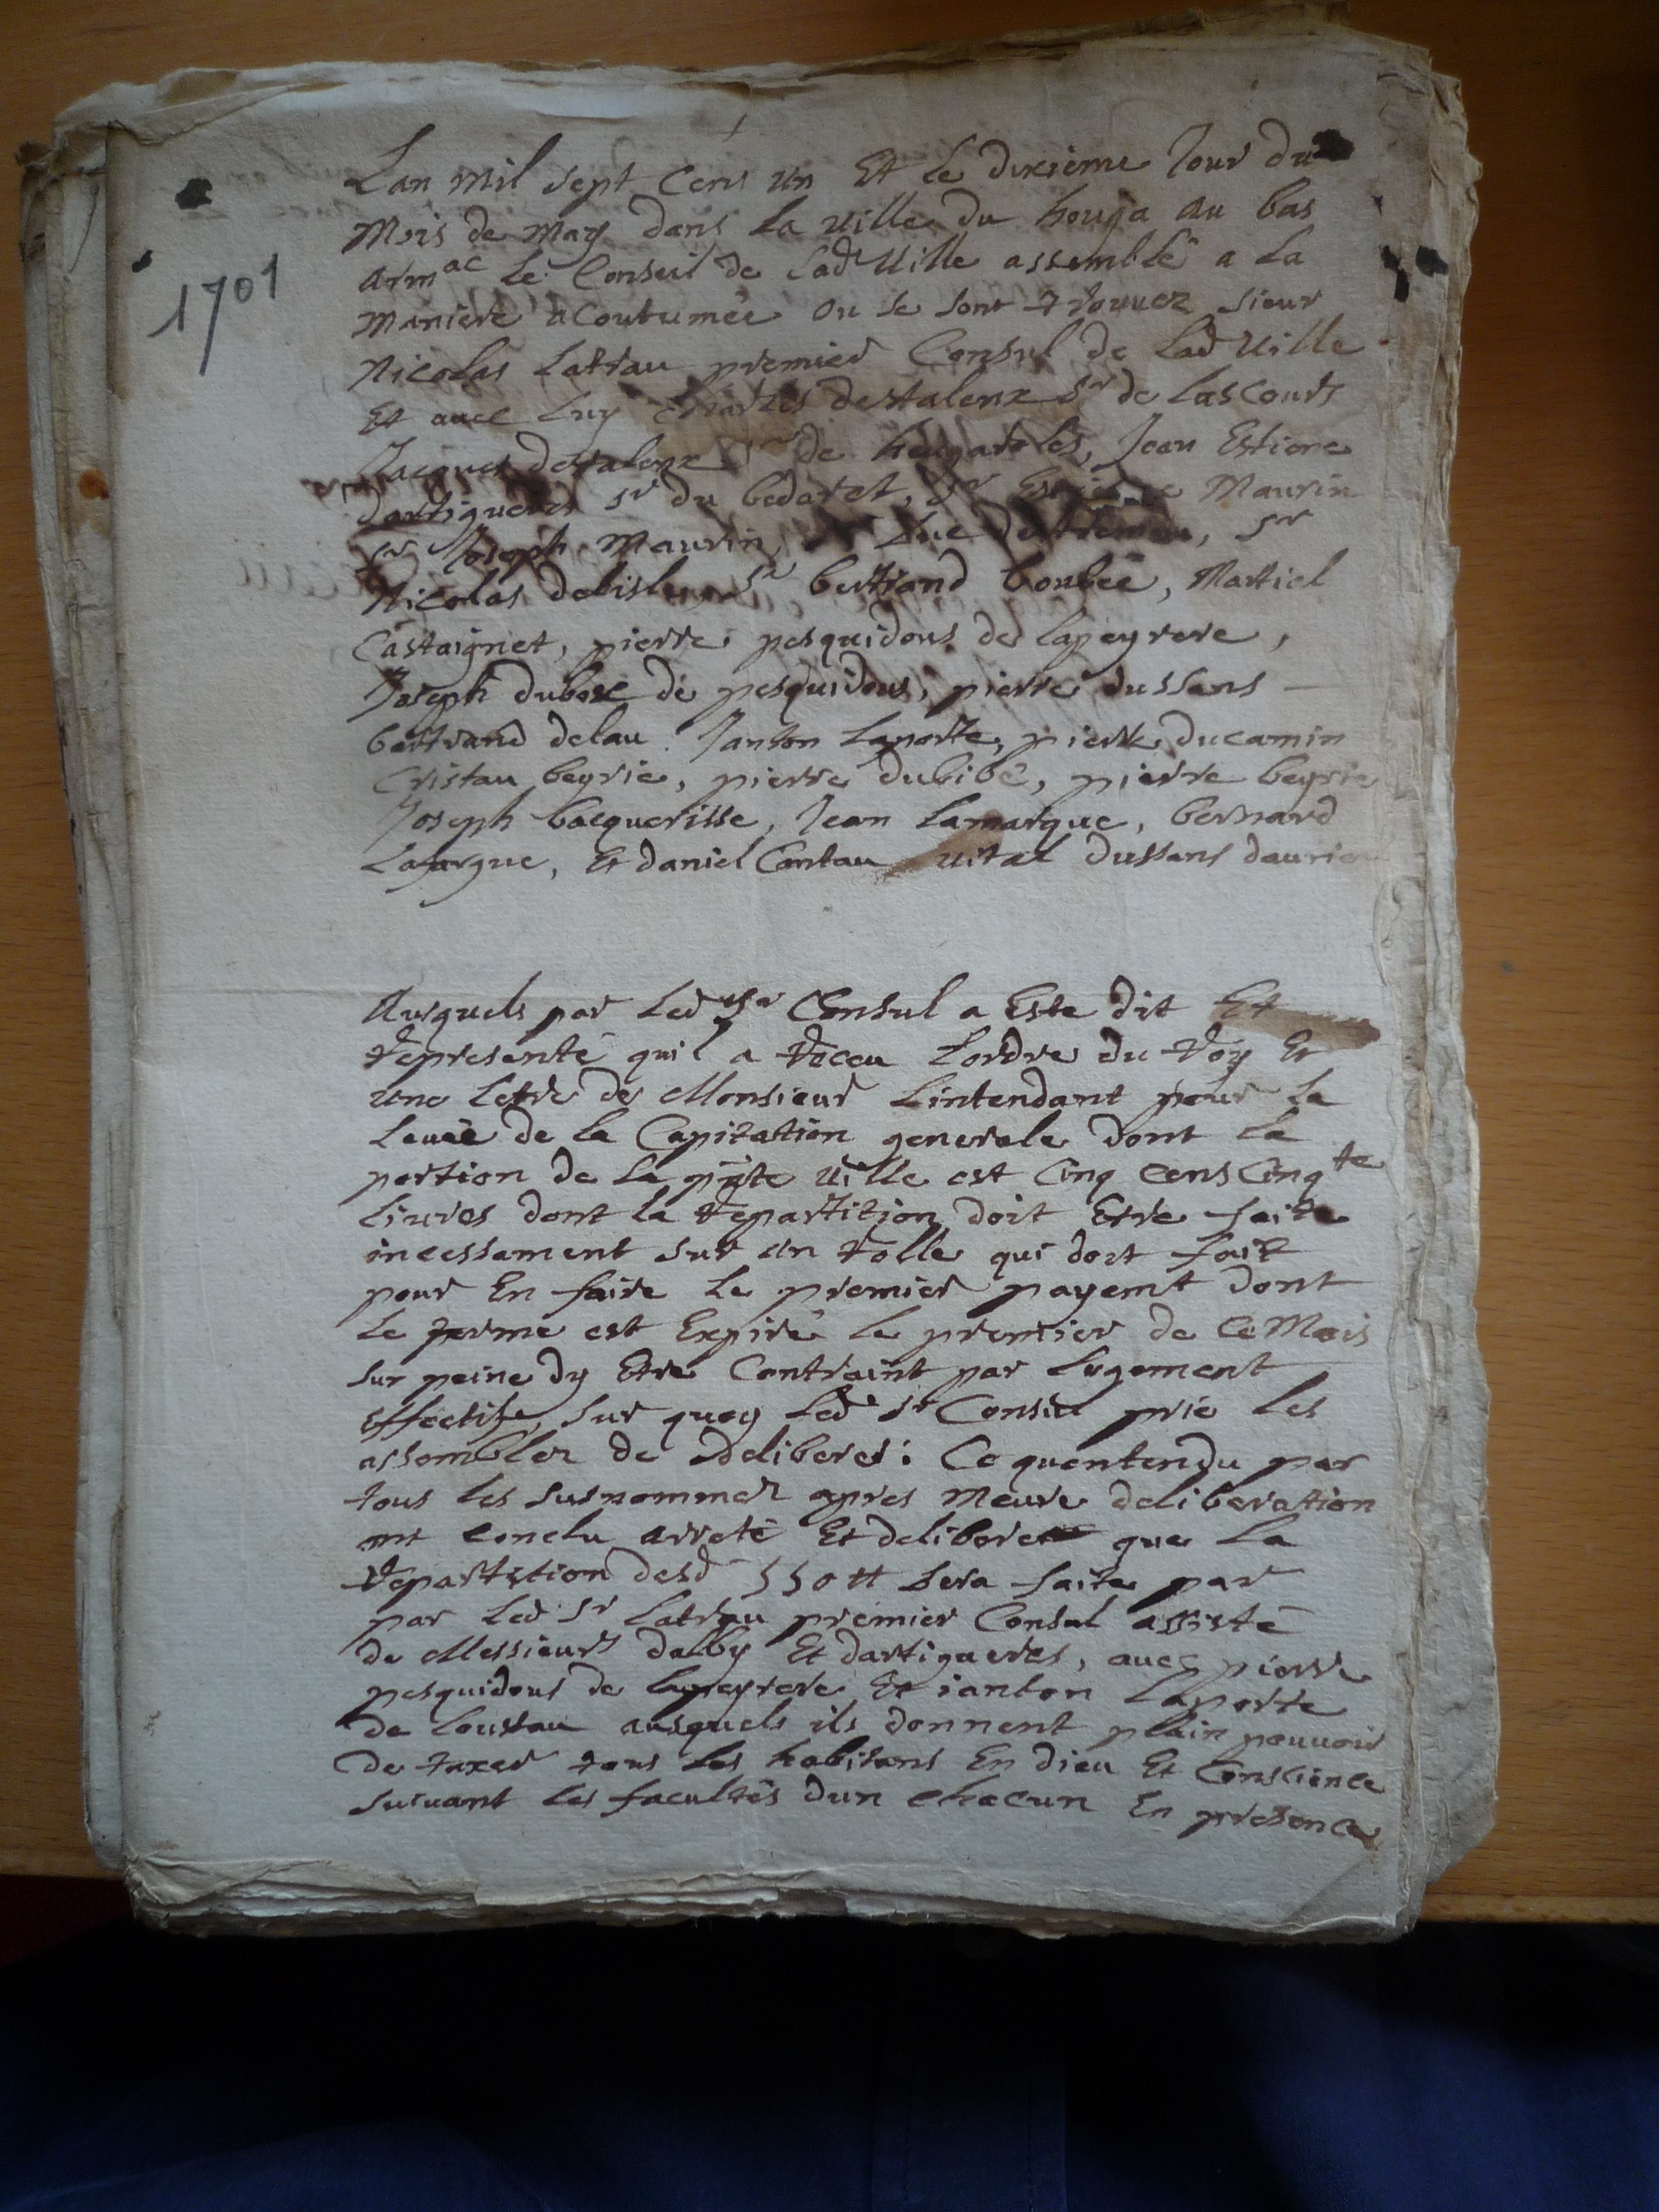 1701
Lan mil sept cens un Et le dixieme Jour du
Mois de may dans la uille du houga au bas
armac le Conseil de lade uille assemblé a la
maniere acoutumée ou se sont trouuez sieur
Nicolas Latrau premier Consul de lad uille
Et auec luy Charles destalenx sr de Lascourts
Jacques destalenx sr de heugaroles, Jean Estiene
dartigueres sr du bedaret, sr Estiene Maurin
sr Joseph Maurin, Luc, sr
Nicolas delisle, sr bertrand boubée, Martial
Castaignet, pierre pesquidous de lapeyrere,
Joseph dubosc de pesquidous, pierre dussans
bertrand delau. Janton Laporte, pierre ducamin
Cristau beyrie, pierre dubibé, pierre beyrie
Joseph bacquerisse, Jean Lamarque, bernard
Lafargue, Et daniel Contau uital dussans
Ausquels par led sr Consul a Este dit Et
represente quil a receu Lordre du roy Et
une letre de Monsieur Lintendant pour la
Leuée de la Capitation generale dont la
portion de la pñte uille est Cinq cens Cinqte
Liures dont la repartition doit Etre faite
incessament sur un rolle qui doit fait
pour En faire le premier payemt dont
le terme est Expiré le premier de ce Mois
sur peine dy Etre Contraint par lugement
Effectif, sur quoy led sr Consul prie les
assemblez de deliberer: Ce quentendu par
tous les susnommez apres meure deliberation
ont conclu arreté Et deliberé que la
repartition desd 550 ₶ sera faite par
par led sr latrau premier Consul assisté
de Messieurs dalby Et dartigueres, auec pierre
pesquidous de lapeyrere Et ianton Laporte
de loustau ausquels ils donnent plain pouuoir
de taxer tous les habitans En dieu Et Conscience
suiuant les facultés dun chacun En presence